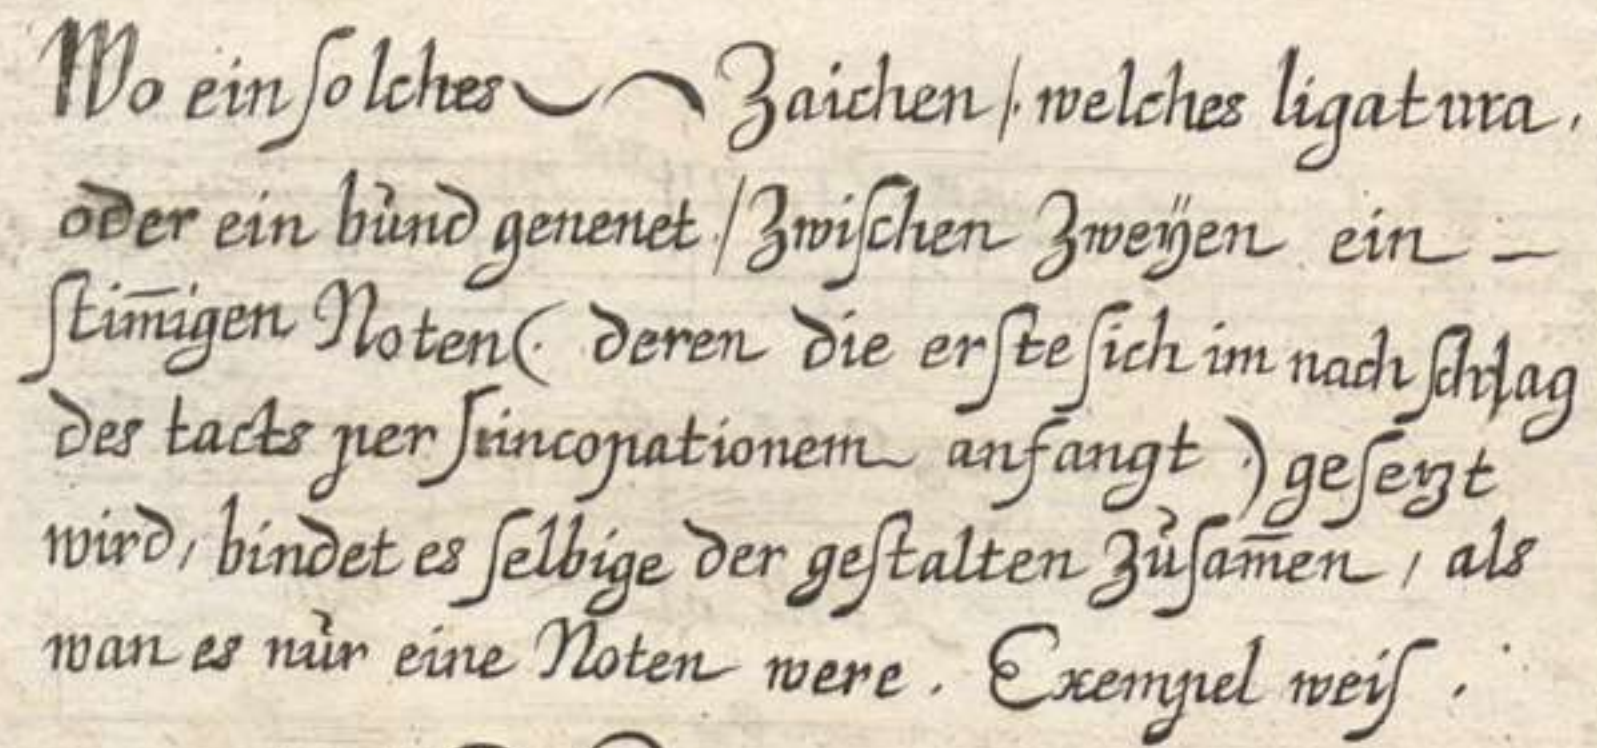 Wo ein ſolches ‿ ⁀ Zaichen /. welches ligatura,
oder ein bůnd genenet ./ Zwiſchen Zweÿen ein -
ſtim̄igen Noten (. deren die erſte ſich im nach ſchlag
des tacts per ſiincopationem anfangt .) geſetzt
wird, bindet es ſelbige der geſtalten Zůſam̄en, als
wan es nůr eine Noten were. Exempel weiſ.